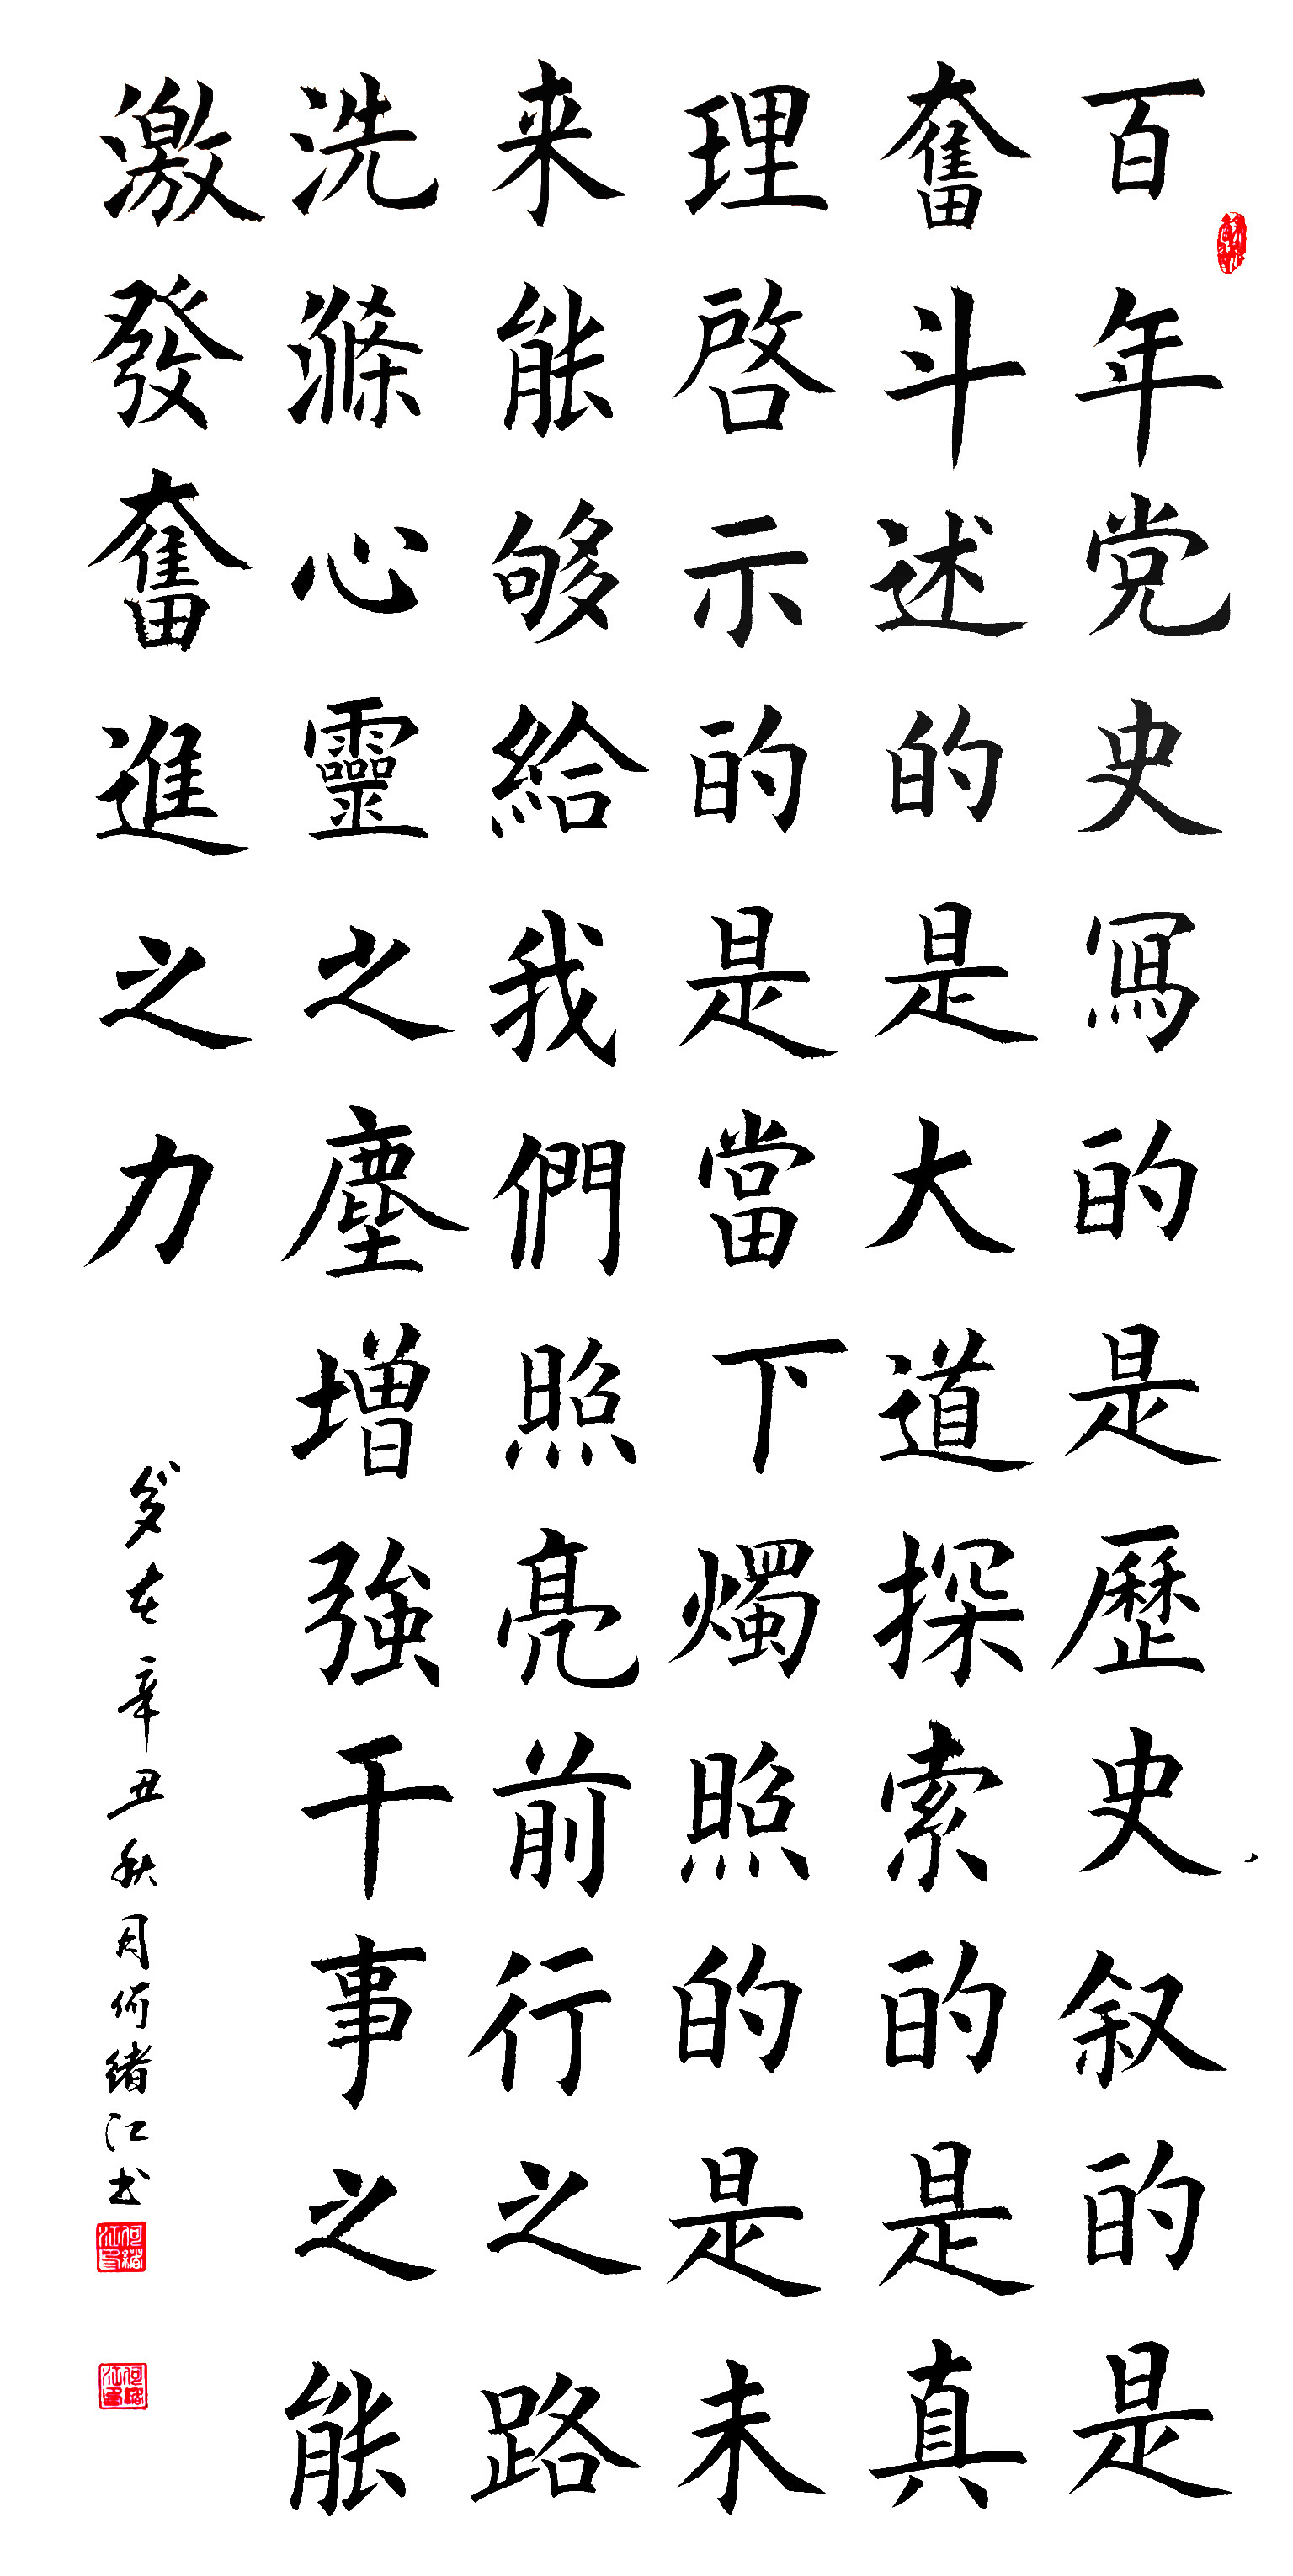 百年党史寫的是歷史叙的是
奮斗述的是大道探索的是真
理啓示的是當下燭照的是未
来能够給我們照亮前行之路
洗滌心靈之塵增強干事之能
激發奮進之力
歲在辛丑秋月何緒江书